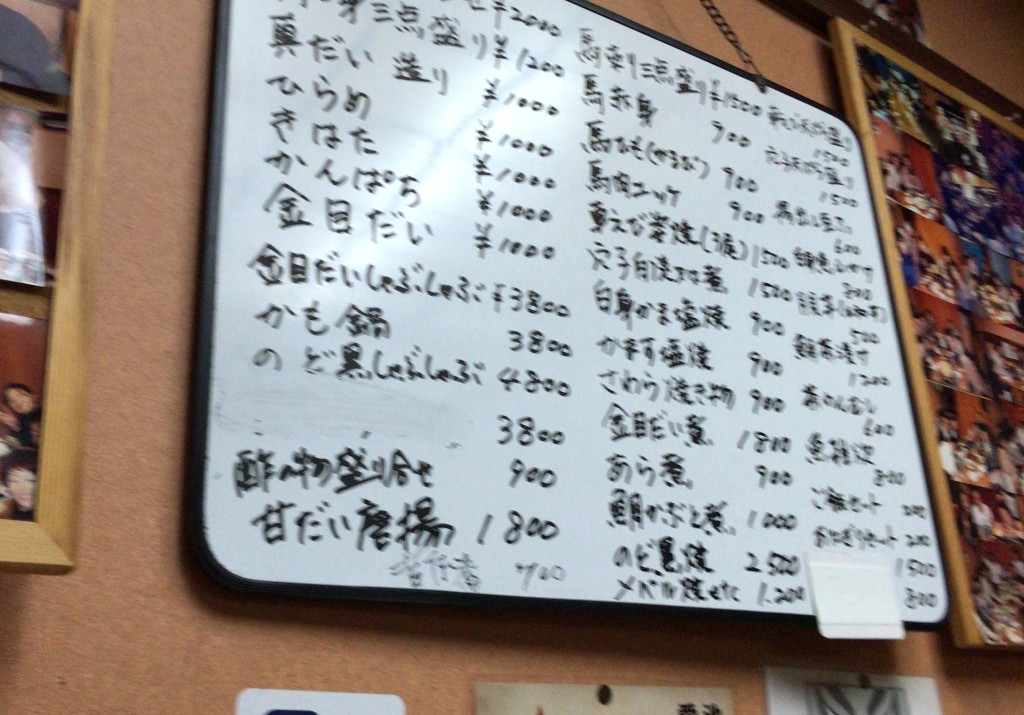 ¥2000
三点盛り ¥1200
真だい 造り ¥1000
ひらめ ¥1000
きはた ¥1000
かんぱち ¥1000
金目だい ¥1000
金目だいしゃぶしゃぶ ¥3800
かも鍋 3800
のど黒しゃぶしゃぶ 4800
3800
酢の物盛り合せ 900
甘だい唐揚 1800
700
馬刺り三点盛り ¥1500
馬赤身 900
馬ひも(かるび) 900
馬肉ユッケ 900
車えび 焼(3尾) 1500
穴子白焼 煮 1500
白身かま塩焼 900
かます塩焼 900
さわら焼き物 900
金目だい煮 1800
あら煮 900
鯛かぶと煮 1000
のど黒焼 2500
メバル焼etc 1.200
天ぷら盛り
1500
穴子天ぷら盛り
1500
600
800
500
鯛茶漬け
1200
茶わんむし
600
魚雑炊
800
ご飯セット 200
おにぎりセット 200
1500
800